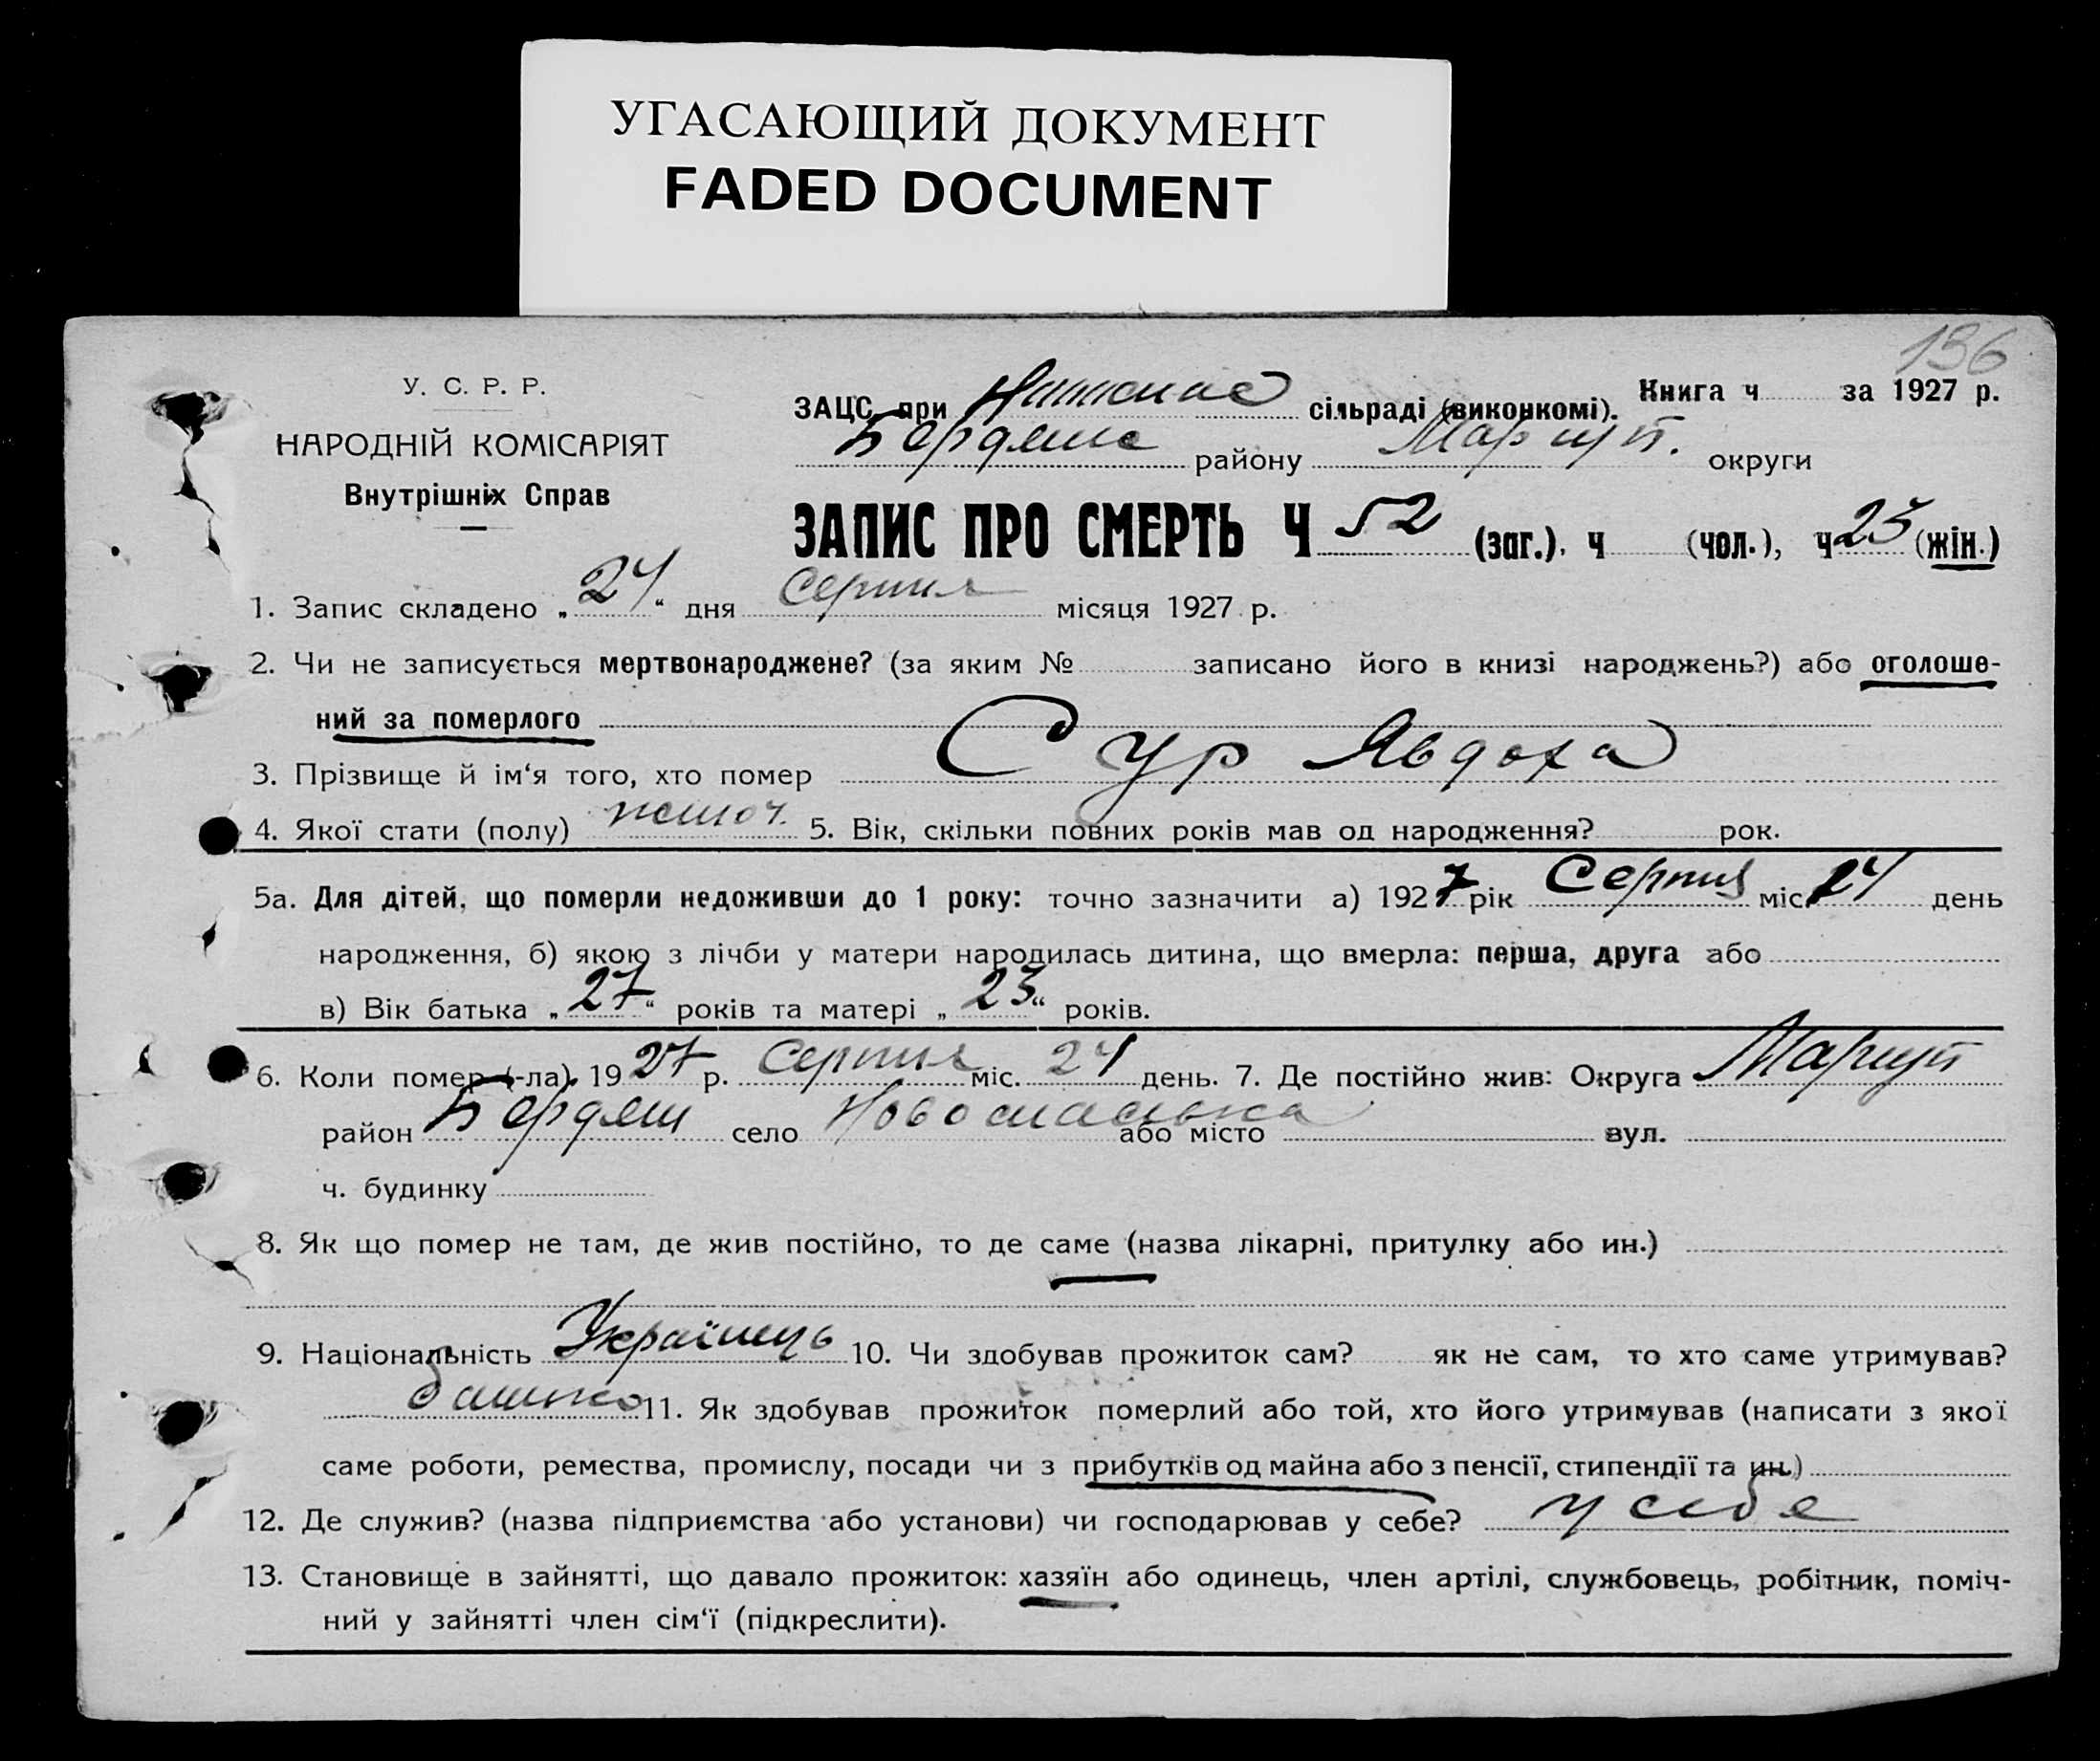 УГАСАЮЩИЙ ДОКУМЕНТ
FADED DOCUMENT
136
У. С. Р. Р.
НАРОДНІЙ КОМІСАРІЯТ
Внутрішніх Справ
Книга ч за 1927 р.
ЗАЦС при сільраді (виконкомі).
Бердянс району Маріуп. округи
ЗАПИС ПРО СМЕРТЬ Ч 52 (заг.), ч (чол.), ч 23 (жін.)
1. Запис складено „24“ дня Серпня місяця 1927 р.
2. Чи не записується мертвонароджене? (за яким № записано його в книзі народжень?) або оголоше-
ний за померлого
3. Прізвище й ім‘я того, хто помер Сур Явдоха
4. Якої стати (полу) жіноч. 5. Вік, скільки повних років мав од народження? рок.
5а. Для дітей, що померли недоживши до 1 року: точно зазначити а) 1927 рік Серпня міс. 24 день
народження, б) якою з лічби у матери народилась дитина, що вмерла: перша, друга або
в) Вік батька „27“ років та матері „23“ років.
6. Коли помер (-ла) 1927 р. Серпня міс. 24 день. 7. Де постійно жив: Округа Маріуп
район Бердян село Новоспаська або місто вул.
ч. будинку
8. Як що помер не там, де жив постійно, то де саме (назва лікарні, притулку або ин.)
9. Національність Українець 10. Чи здобував прожиток сам? як не сам, то хто саме утримував?
батько 11. Як здобував прожиток померлий або той, хто його утримував (написати з якої
саме роботи, ремества, промислу, посади чи з прибутків од майна або з пенсії, стипендії та ин.)
12. Де служив? (назва підприємства або установи) чи господарював у себе? у себе
13. Становище в зайнятті, що давало прожиток: хазяїн або одинець, член артілі, службовець, робітник, поміч-
ний у зайнятті член сім‘ї (підкреслити).